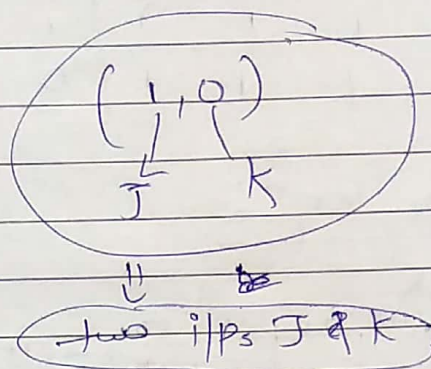 (1,0)
J K
two i/ps J & K